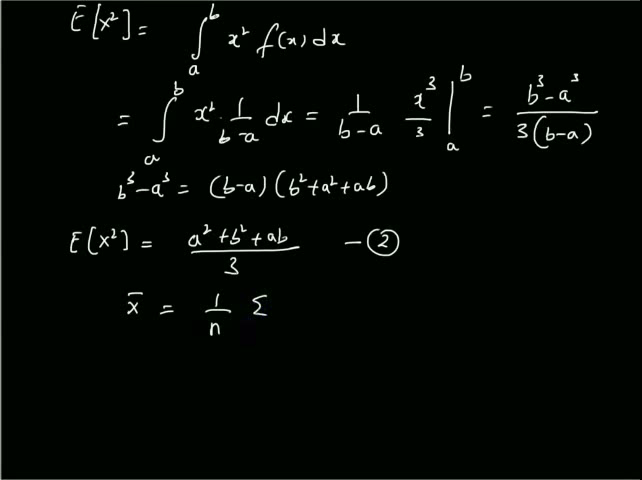 E[x²] = ∫ₐᵇ x² f(x) dx
= ∫ₐᵇ x² · 1/(b-a) dx = 1/(b-a) x³/3 |ₐᵇ = (b³-a³)/(3(b-a))
b³-a³ = (b-a)(b²+a²+ab)
E[x²] = (a²+b²+ab)/3 -②
x̄ = 1/n Σ